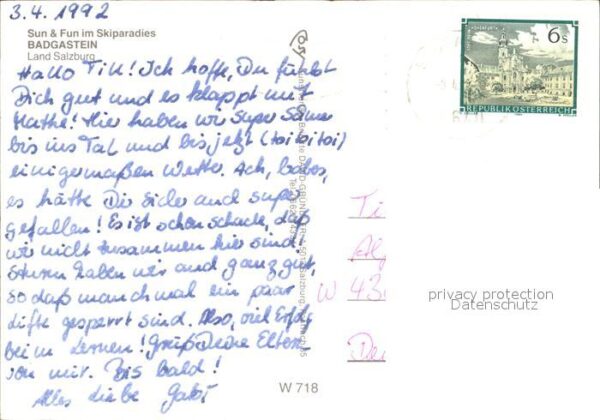 3.4.1992
Sun & Fun im Skiparadies
BADGASTEIN
Land Salzburg
Hallo Till! Ich hoffe, Du fühlst
Dich gut und es klappt mit
Mathe! Hier haben wir super Schnee
bis ins Tal und bis jetzt (toi toi toi)
einigermaßen Wetter. Ach,
es hätte Dir sicher auch super
gefallen! Es ist schon schade, daß
wir nicht zusammen hier sind!
Sturm haben wir auch ganz gut,
so daß manchmal ein paar
Lifte gesperrt sind. Also, viel Erfolg
beim Lernen! Grüß Deine Eltern
von mir. Bis bald!
Alles Liebe Gabi
6s
REPUBLIK ÖSTERREICH
Ti
W 43
De
privacy protection
Datenschutz
W 718